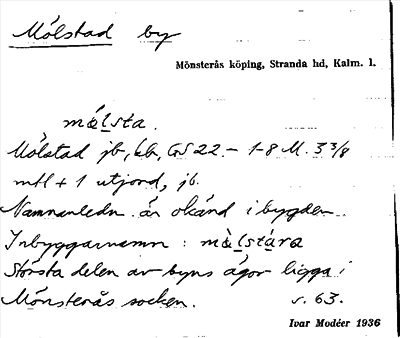 Mölstad by
Mönsterås köping, Stranda hd, Kalm. l.
mǻlsta.
Mölstad jb, kb, GS 22. – 1-8 M. 3 3/8
mtl + 1 utjord, jb.
Namnanledn. är okänd i bygden.
Inbyggarnamn: mǻlstára
Största delen av byns ägor ligga i
Mönsterås socken. s. 63.
Ivar Modéer 1936